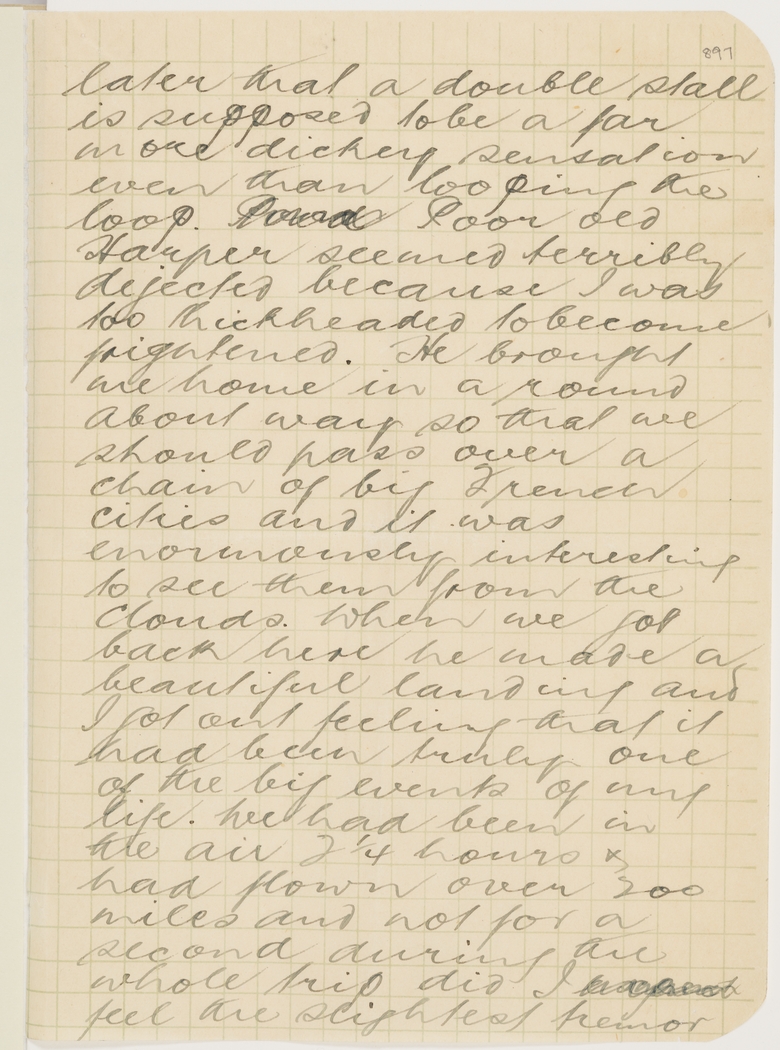 897
later that a double stall
is supposed tobe a far
more dickey sensation
even than looping the
loop. Poor old
Harper seemed terribly
dejected because I was
too thickheaded tobecome
frightened. He brought
me home in a round
about way so that we
should pass over a
chain of big French
cities and it was
enormously interesting
to see them from the
clouds. When we got
back here he made a
beautiful landing and
I got out feeling that it
had been truly one
of the big events of my
life. We had been in
the air 2 1/4 hours &
had flown over 200
miles and not for a
second during the
whole trip did I
feel the slightest tremor